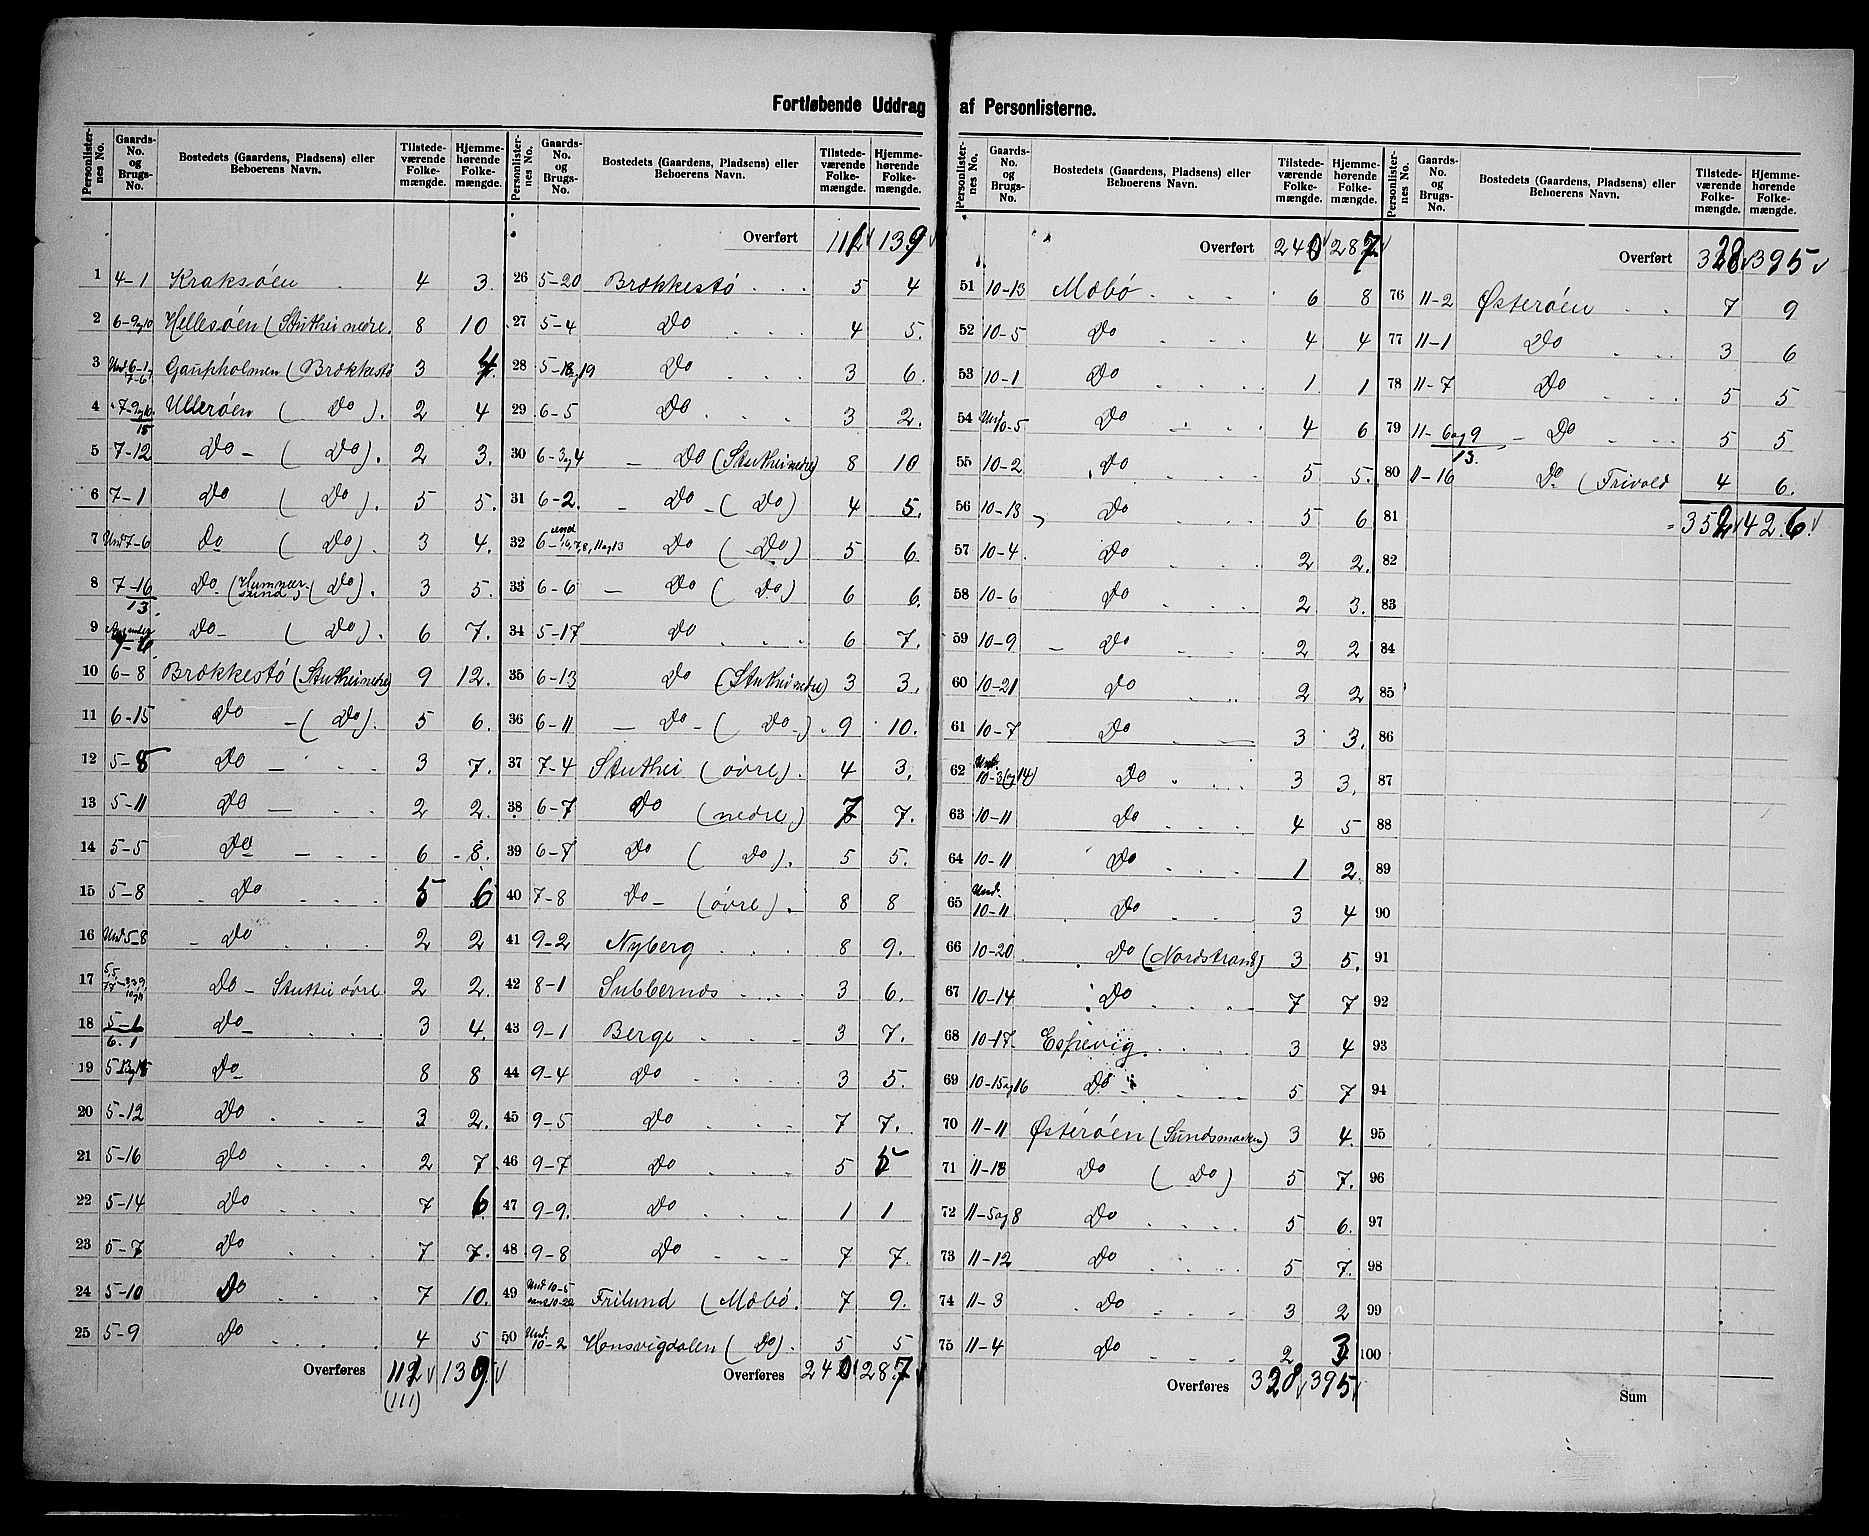 Fortløbende Uddrag af Personlisterne.
Personlister-nes No. Gaards-No. og Brugs-No. Bostedets (Gaardens, Pladsens) eller Beboerens Navn. Tilstede-værende Folke-mængde. Hjemme-hørende Folke-mængde.
1 4-1 Kraksöen 4 3.
2 6-9og10 Hellesöen (Stuthei nedre. 8 10
3 Und. 6-1, 7-6 Gaupholmen (Brækkestö 3 4.
4 7-9og10. 15 Ulleröen ( Do ). 2 4
5 7-12 Do - ( Do ). 2 3.
6 7-1 Do ( Do ). 5 5.
7 Und 7-6 Do ( Do ). 3 4.
8 7-16 13. Do. ( Do ). 3 5.
9 7-6 Do- ( Do ). 6 7.
10 6-8 Brækkestö (Stuthei nedre) 9 12.
11 6-15 Do - ( Do ). 5 6.
12 5-8 Do - 3 7.
13 5-11 Do - 2 2.
14 5-5 Do - 6 8.
15 5-8 Do 5 6
16 Und 5-8 Do 2 2
17 Do - Stuthei övre 2 2.
18 5-1 6.1 Do- 3 4.
19 5-13og15 Do 8 8
20 5-12 Do 3 2.
21 5-16 Do 2 7.
22 5-14 Do 7 6
23 5-7 Do 7 7.
24 5-10 Do 7 10.
25 5-9 Do 4 5
Overføres 112 139
(111)
Personlister-nes No. Gaards-No. og Brugs-No. Bostedets (Gaardens, Pladsens) eller Beboerens Navn. Tilstede-værende Folke-mængde. Hjemme-hørende Folke-mængde.
Overført 112 139
26 5-20 Brækkestö 5 4
27 5-4 Do 4 5.
28 5-18og19 Do 3 6.
29 6-5 Do 3 2.
30 6-3og4 - Do (Stuthei nedre) 8 10
31 6-2. - Do - ( Do ) 4 5.
32 Do ( Do ) 5 6
33 6-6 - Do ( Do ) 6 6.
34 5-17 Do 6 7.
35 6-13 Do (Stuthei nedre) 3 3.
36 6-11 - Do - ( Do - ). 9 10.
37 7-4 Stuthei (övre). 4 3.
38 6-7 Do (nedre) 7 7.
39 6-7 Do ( Do ). 5 5.
40 7-8 Do - (övre). 8 8
41 9-2 Nyberg 8 9.
42 8-1 Subbernæs 3 6.
43 9-1 Berge 3 7.
44 9-4 Do 3 5.
45 9-5 Do 7 7.
46 9-7 Do 5 5
47 9-9. Do 1 1
48 9-8 Do 7 7.
49 Und 10-5 samt 10-22 Frilund (Mæbö. 7 9.
50 Und. 10-2 Hansvigdalen ( Do ). 5 5
Overføres 240 287
Personlister-nes No. Gaards-No. og Brugs-No. Bostedets (Gaardens, Pladsens) eller Beboerens Navn. Tilstede-værende Folke-mængde. Hjemme-hørende Folke-mængde.
Overført 240 287
51 10-13 Mæbö 6 8
52 10-5 Do 4 4
53 10-1 Do 1. 1
54 Und 10-5 Do 4 6
55 10-2 Do 5 5.
56 10-13 Do 5 6
57 10-4. Do 2 2.
58 10-6 Do 2 3.
59 10-9 - Do 2 2
60 10-21 Do 2 2
61 10-7 Do 3 3.
62 Und. 10-3(og14) Do 3 3.
63 10-11 Do 4 5
64 10-11 Do 1 2.
65 Und. 10-11 Do 3 4
66 10-20 Do (Nordstrand) 3 5.
67 10-14 Do 7 7
68 10-17. Espevig. 3 4
69 10-15og16 Do 5 7
70 11-11 Østeröen (Sundsmarken) 3 4.
71 11-13 Do ( Do ) 5 7.
72 11-5og8 Do 5 6.
73 11-12 Do 5 7.
74 11-3 Do 3 2
75 11-4 Do 2 3
Overføres 328 395
Personlister-nes No. Gaards-No. og Brugs-No. Bostedets (Gaardens, Pladsens) eller Beboerens Navn. Tilstede-værende Folke-mængde. Hjemme-hørende Folke-mængde.
Overført 328 395
76 11-2 Østeröen 7 9
77 11-1 Do 3 6
78 11-7 Do 5 5
79 11-6og9 13. - Do 5 5
80 11-16 Do (Frivold 4 6.
81 352 426
82
83
84
85
86
87
88
89
90
91
92
93
94
95
96
97
98
99
100
Sum